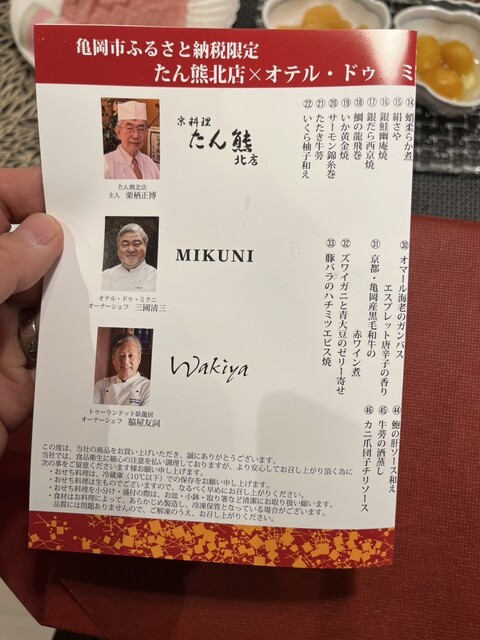 亀岡市ふるさと納税限定
たん熊北店×オテル・ドゥ・ミ
京料理
たん熊
北店
たん熊北店
主人 栗栖正博
⑭蛸柔らか煮
⑮絹さや
⑯銀鮭幽庵焼
⑰銀だら西京焼
⑱鯛の龍飛巻
⑲いか黄金焼
⑳サーモン錦糸巻
㉑たたき牛蒡
㉒いくら柚子和え
MIKUNI
オテル・ドゥ・ミクニ
オーナーシェフ 三國清三
㉚オマール海老のガンバス
エスプレット唐辛子の香り
㉛京都・亀岡産黒毛和牛の
赤ワイン煮
㉜ズワイガニと青大豆のゼリー寄せ
㉝豚バラのハチミツエピス焼
Wakiya
トゥーランドット臥龍居
オーナーシェフ 脇屋友詞
㊹鮑の肝ソース和え
㊺牛蒡の酒蒸し
㊻カニ爪団子チリソース
この度は、当社の商品をお買い上げいただき、誠にありがとうございます。
当社では、食品衛生に細心の注意を払い調理しておりますが、より安心してお召し上がり頂く為に
次の事をご留意くださいます様お願い申し上げます。
・おせち料理は、冷蔵庫(10℃以下)での保存をお願い申し上げます。
・おせち料理は生ものでございますので、なるべく早めにお召し上がりください。
・おせち料理を小分け・盛付の際は、お皿・小鉢・取り箸など清潔にお取り扱い願います。
・食材はお料理によって、あらかじめ製造し、冷凍保管となっている場合がございます。
品質には問題ありませんので、ご解凍のうえ、お召し上がりください。